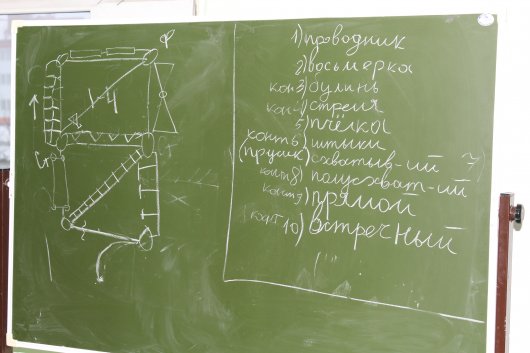 Ф
1-4
Ст
Ст
1) проводник
2) восьмерка
конт 3) булинь
конт 4) стремя
5) пчёлка
конт 6) штыки
(прусик) схватыв-ий 7
конт 8) полусхват-ий
конт 9) прямой
конт 10) встречный